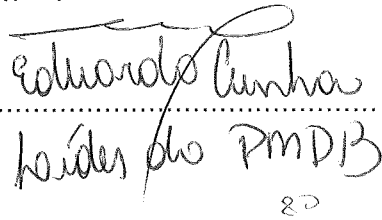 Eduardo Cunha
Líder do PMDB